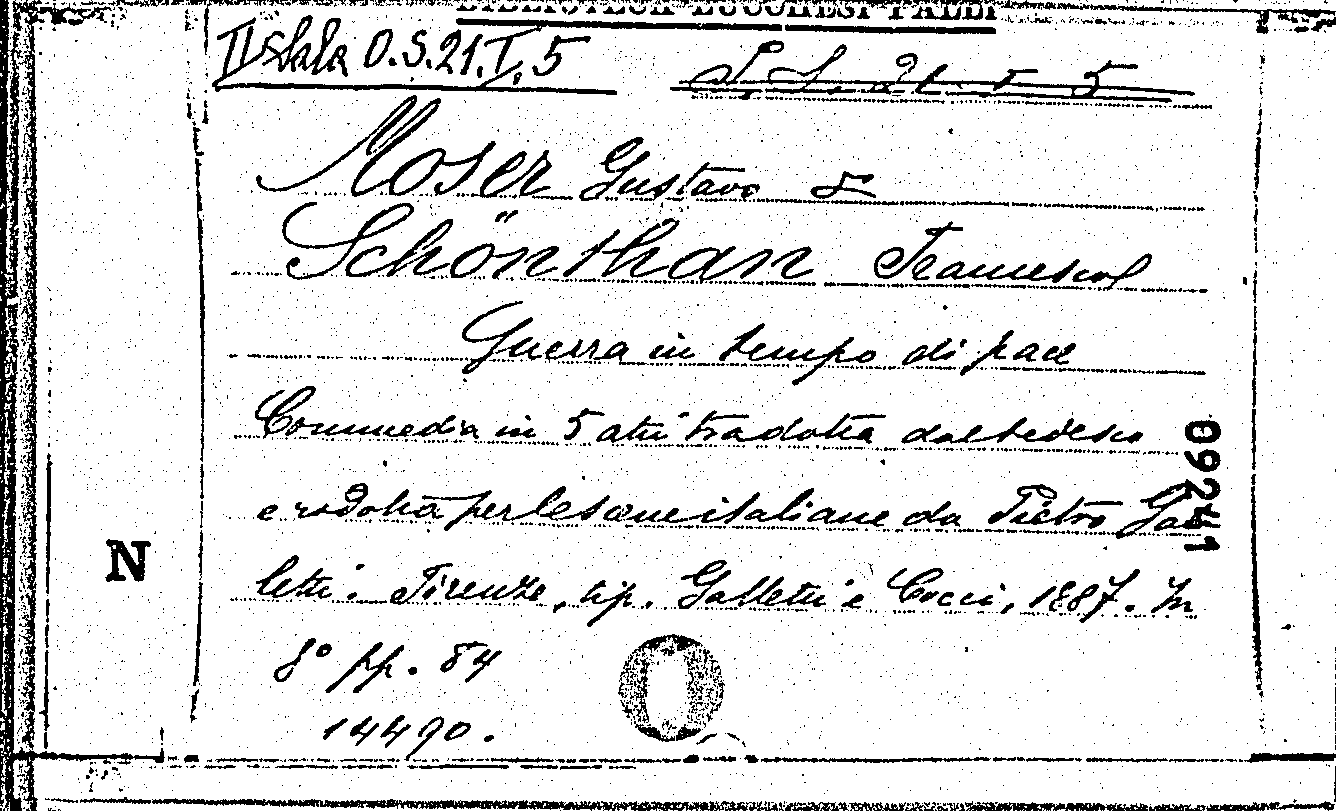 BIBLIOTECA LUCCHESI PALLI
II Sala O.S.21.I.5
S. L. 21. I 5
Moser Gustavo &
Schönthan Francesco
Guerra in tempo di pace
Commedia in 5 atti tradotta dal tedesco
e ridotta per le scene italiane da Pietro Gal
letti. Firenze, tip. Galletti e Cocci, 1887. In
8° pp. 84
14490.
09241
N